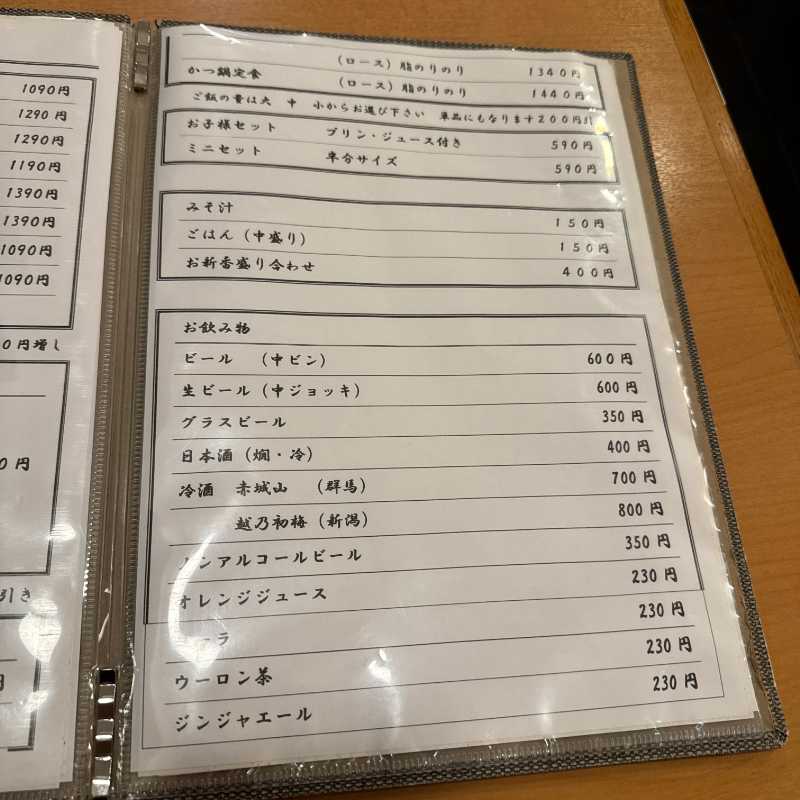 1090円
1290円
1290円
1190円
1390円
1390円
1090円
1090円
0円増し
0円
引き
円
(ロース) 脂のりのり 1340円
かつ鍋定食 (ロース) 脂のりのり 1440円
ご飯の量は大 中 小からお選び下さい 単品にもなります200円引
お子様セット プリン・ジュース付き 590円
ミニセット 半分サイズ 590円
みそ汁 150円
ごはん(中盛り) 150円
お新香盛り合わせ 400円
お飲み物
ビール (中ビン) 600円
生ビール(中ジョッキ) 600円
グラスビール 350円
日本酒(燗・冷) 400円
冷酒 赤城山 (群馬) 700円
越乃初梅(新潟) 800円
ノンアルコールビール 350円
オレンジジュース 230円
ーラ 230円
ウーロン茶 230円
ジンジャエール 230円